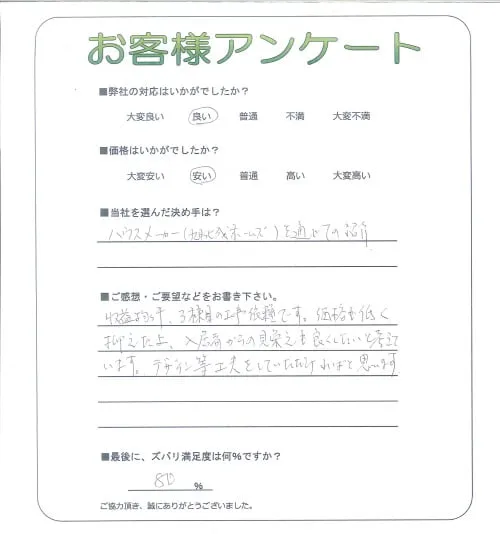 お客様アンケート
■弊社の対応はいかがでしたか？
大変良い 良い 普通 不満 大変不満
■価格はいかがでしたか？
大変安い 安い 普通 高い 大変高い
■当社を選んだ決め手は？
ハウスメーカー(旭化成ホームズ)を通じての紹介
■ご感想・ご要望などをお書き下さい。
3棟目の工事依頼です。価格を低く
抑えた上、入居者からの見栄えも良くしたいと考えて
います。デザイン等工夫をしていただければと思います
■最後に、ズバリ満足度は何%ですか？
80 %
ご協力頂き、誠にありがとうございました。